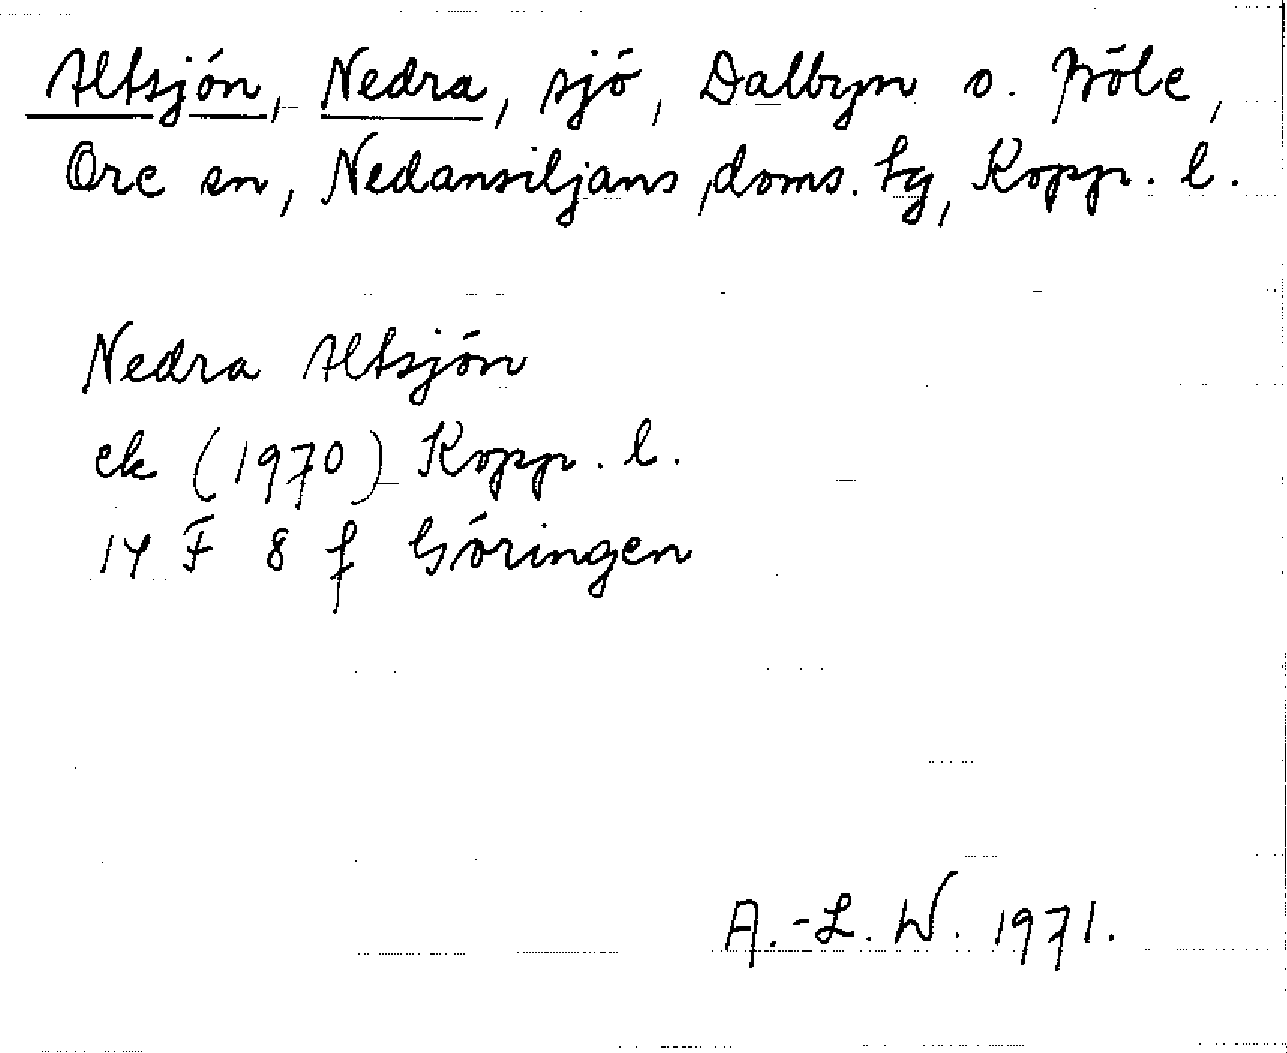 Altsjön, Nedra, sjö, Dalbyn o.
Ore sn, Nedansiljans doms. tg, Kopp. l.
Nedra Altsjön
ek (1970) Kopp. l.
14 F 8 f Göringen
A.-L. W. 1971.